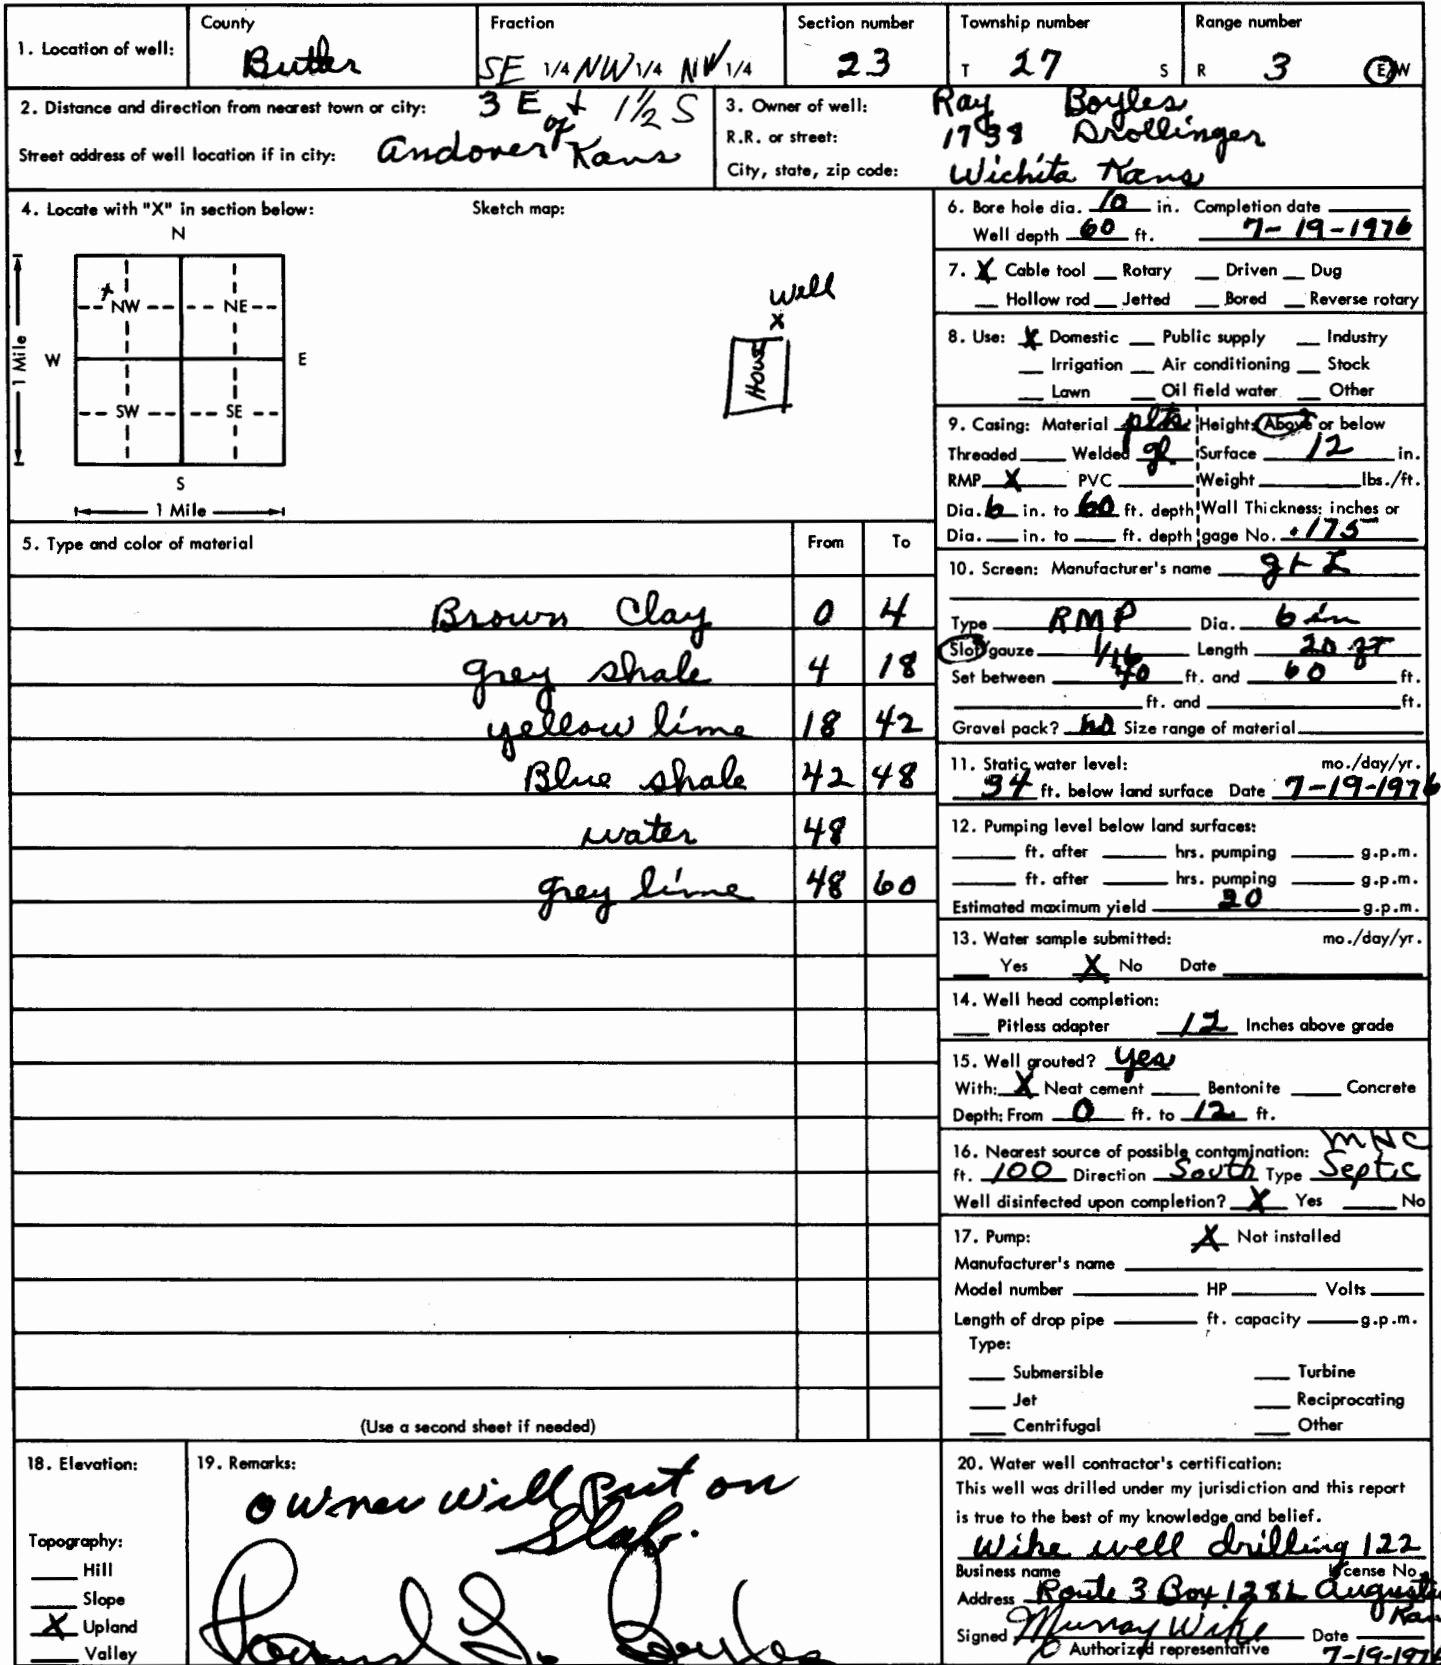 1. Location of well:
County
Butler
Fraction
SE 1/4 NW 1/4 NW 1/4
Section number
23
Township number
T 27 S
Range number
R 3 E/W
2. Distance and direction from nearest town or city: 3 E + 1½ S
of
Street address of well location if in city: Andover Kans
3. Owner of well: Ray Boyles
R.R. or street: 1738 Drollinger
City, state, zip code: Wichita Kans
4. Locate with "X" in section below:
Sketch map:
N
X
NW NE
W E
1 Mile
SW SE
S
1 Mile
well
x
House
5. Type and color of material From To
Brown Clay 0 4
grey shale 4 18
yellow lime 18 42
Blue shale 42 48
water 48
grey lime 48 60
(Use a second sheet if needed)
6. Bore hole dia. 10 in. Completion date
Well depth 60 ft. 7-19-1976
7. X Cable tool __ Rotary __ Driven __ Dug
__ Hollow rod __ Jetted __ Bored __ Reverse rotary
8. Use: X Domestic __ Public supply __ Industry
__ Irrigation __ Air conditioning __ Stock
__ Lawn __ Oil field water __ Other
9. Casing: Material Height: Above or below
Threaded ___ Welded gl Surface 12 in.
RMP X PVC ___ Weight ___ lbs./ft.
Dia. 6 in. to 60 ft. depth Wall Thickness: inches or
Dia. ___ in. to ___ ft. depth gage No. .175
10. Screen: Manufacturer's name
Type RMP Dia. 6 in
Slot/gauze 1/16 Length 20 ft
Set between 40 ft. and 60 ft.
___ ft. and ___ ft.
Gravel pack? no Size range of material
11. Static water level: mo./day/yr.
34 ft. below land surface Date 7-19-1976
12. Pumping level below land surfaces:
___ ft. after ___ hrs. pumping ___ g.p.m.
___ ft. after ___ hrs. pumping ___ g.p.m.
Estimated maximum yield 20 g.p.m.
13. Water sample submitted: mo./day/yr.
___ Yes X No Date
14. Well head completion:
___ Pitless adapter 12 Inches above grade
15. Well grouted? yes
With: X Neat cement ___ Bentonite ___ Concrete
Depth: From 0 ft. to 12 ft.
16. Nearest source of possible contamination: MNC
ft. 100 Direction South Type Septic
Well disinfected upon completion? X Yes ___ No
17. Pump: X Not installed
Manufacturer's name
Model number ___ HP ___ Volts
Length of drop pipe ___ ft. capacity ___ g.p.m.
Type:
___ Submersible ___ Turbine
___ Jet ___ Reciprocating
___ Centrifugal ___ Other
18. Elevation:
Topography:
___ Hill
___ Slope
X Upland
___ Valley
19. Remarks:
owner will put on
Slab.
20. Water well contractor's certification:
This well was drilled under my jurisdiction and this report
is true to the best of my knowledge and belief.
Wike well drilling 122
Business name License No.
Address Route 3 Box 128L Augusta
Kan
Signed Murray Wike Date
Authorized representative 7-19-1976